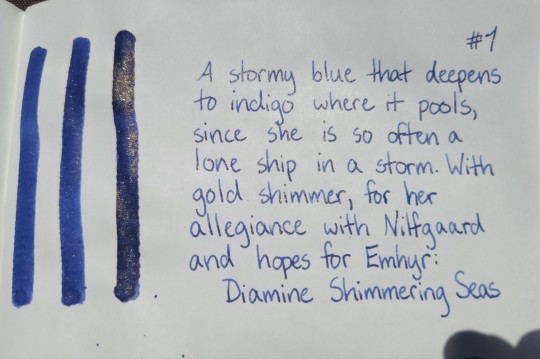 #1
A stormy blue that deepens
to indigo where it pools,
since she is so often a
lone ship in a storm. With
gold shimmer, for her
allegiance with Nilfgaard
and hopes for Emhyr:
Diamine Shimmering Seas